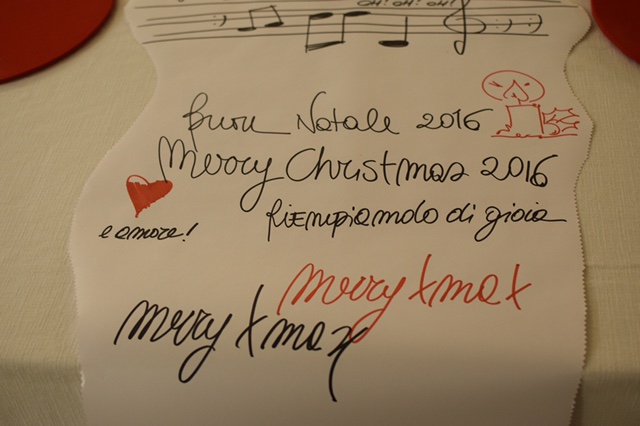 OH! OH! OH!
Buon Natale 2016
Merry Christmas 2016
e amore!
Riempiamolo di gioia
merry xmax
merry xmax